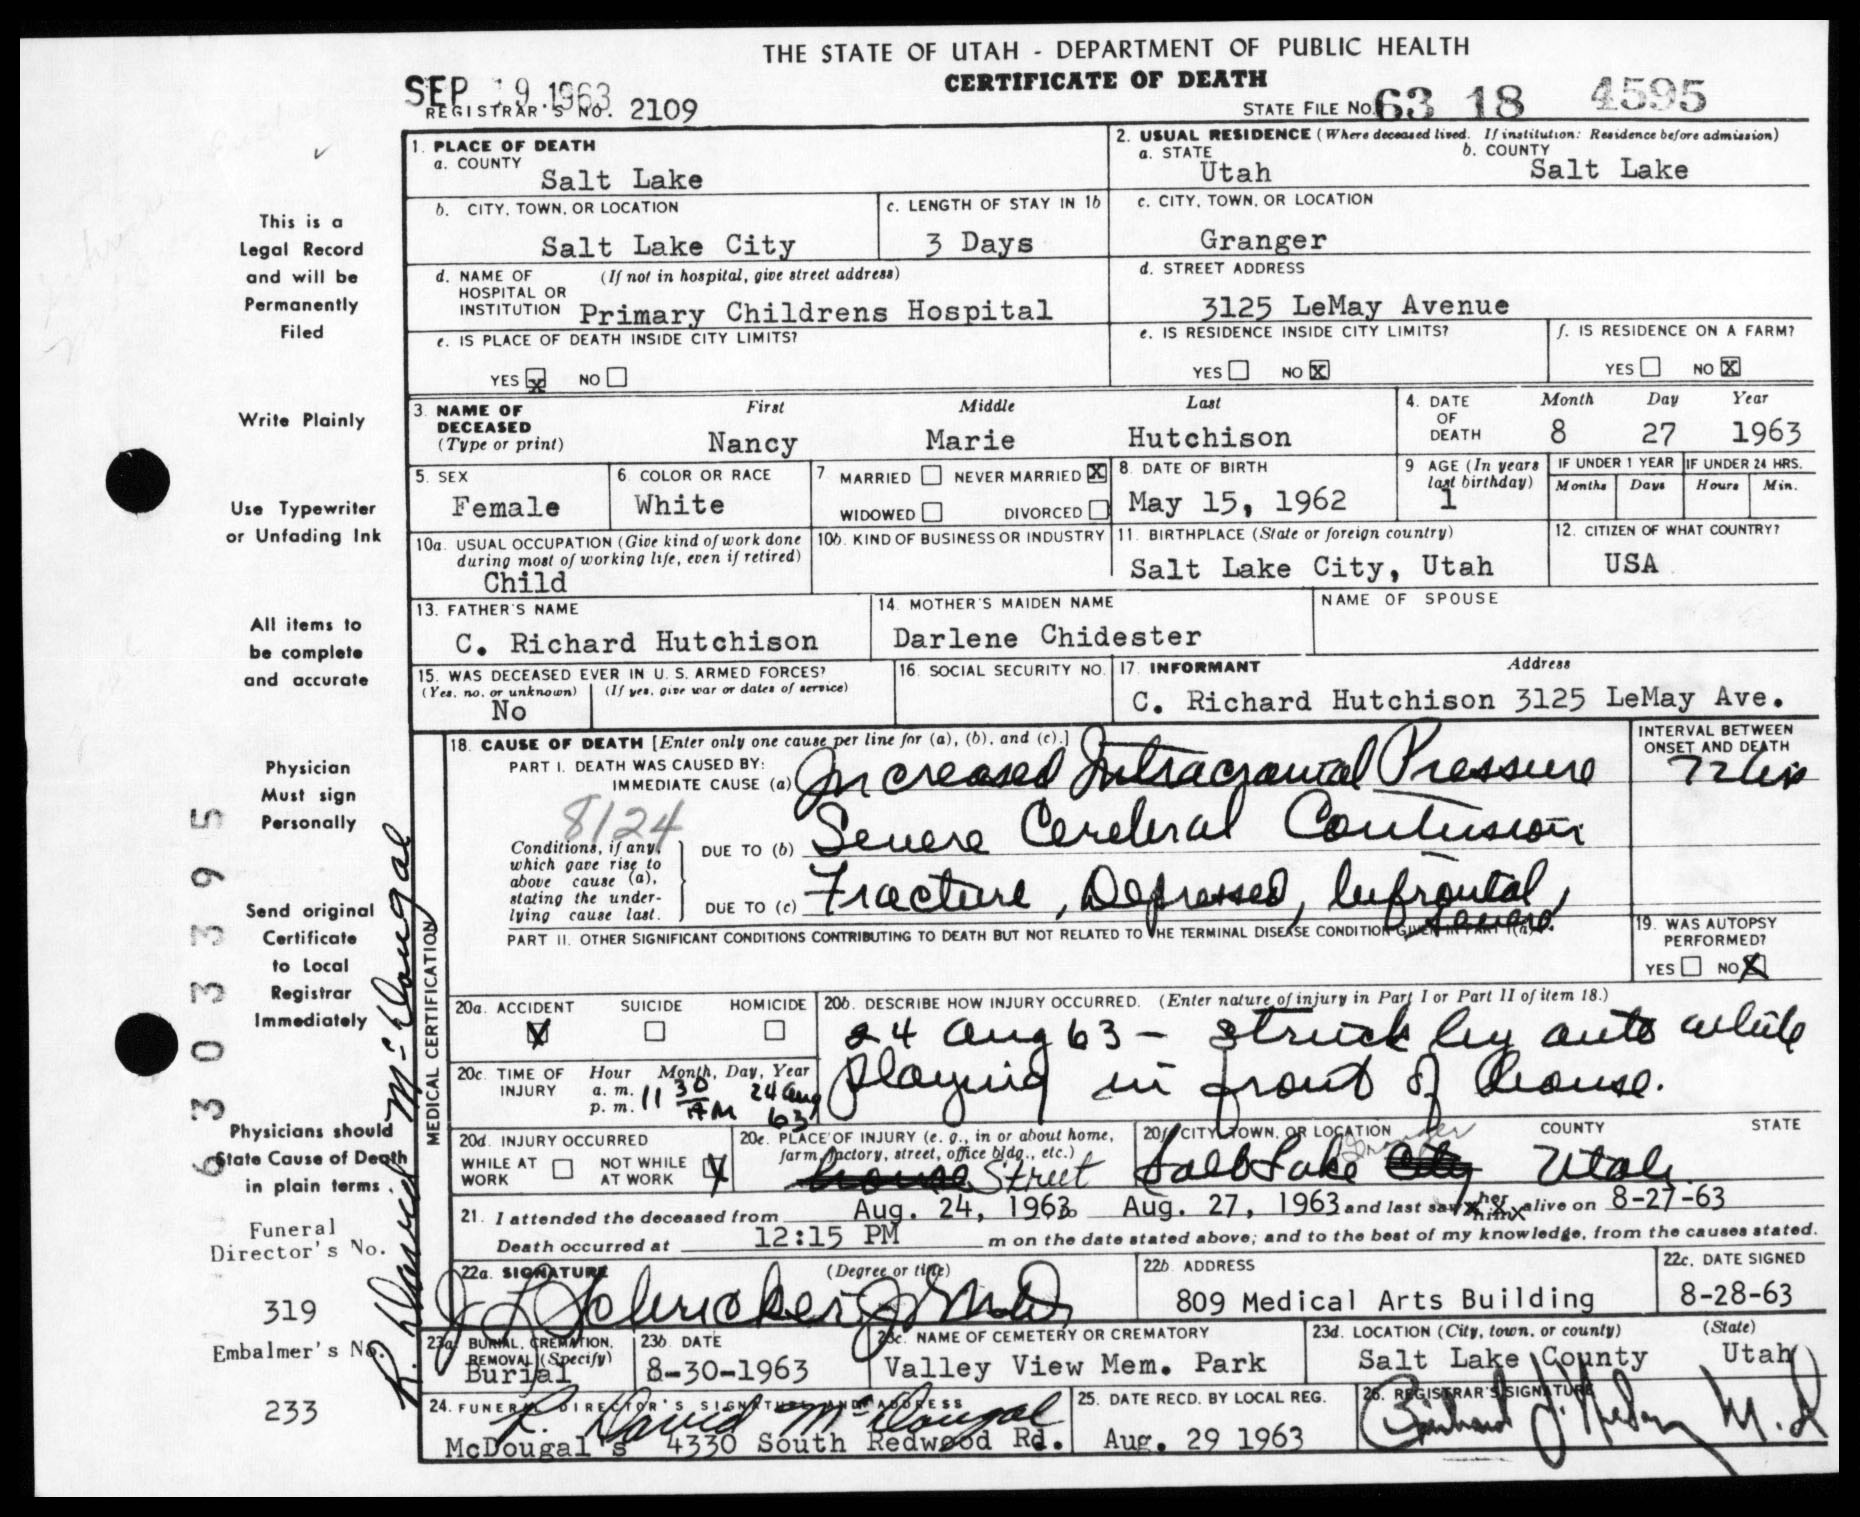 THE STATE OF UTAH - DEPARTMENT OF PUBLIC HEALTH
CERTIFICATE OF DEATH
SEP 19 1963
REGISTRAR'S NO. 2109
STATE FILE NO. 63 18 4595
1. PLACE OF DEATH
a. COUNTY
Salt Lake
2. USUAL RESIDENCE (Where deceased lived. If institution: Residence before admission)
a. STATE
Utah
b. COUNTY
Salt Lake
b. CITY, TOWN, OR LOCATION
Salt Lake City
c. LENGTH OF STAY IN 1b
3 Days
c. CITY, TOWN, OR LOCATION
Granger
d. NAME OF HOSPITAL OR INSTITUTION (If not in hospital, give street address)
Primary Childrens Hospital
d. STREET ADDRESS
3125 LeMay Avenue
e. IS PLACE OF DEATH INSIDE CITY LIMITS?
YES X NO
e. IS RESIDENCE INSIDE CITY LIMITS?
YES NO X
f. IS RESIDENCE ON A FARM?
YES NO X
3. NAME OF DECEASED (Type or print)
First Middle Last
Nancy Marie Hutchison
4. DATE OF DEATH
Month Day Year
8 27 1963
5. SEX
Female
6. COLOR OR RACE
White
7. MARRIED NEVER MARRIED X
WIDOWED DIVORCED
8. DATE OF BIRTH
May 15, 1962
9 AGE (In years last birthday)
1
IF UNDER 1 YEAR
Months Days
IF UNDER 24 HRS.
Hours Min.
10a. USUAL OCCUPATION (Give kind of work done during most of working life, even if retired)
Child
10b. KIND OF BUSINESS OR INDUSTRY
11. BIRTHPLACE (State or foreign country)
Salt Lake City, Utah
12. CITIZEN OF WHAT COUNTRY?
USA
13. FATHER'S NAME
C. Richard Hutchison
14. MOTHER'S MAIDEN NAME
Darlene Chidester
NAME OF SPOUSE
15. WAS DECEASED EVER IN U. S. ARMED FORCES?
(Yes, no, or unknown) (If yes, give war or dates of service)
No
16. SOCIAL SECURITY NO.
17. INFORMANT Address
C. Richard Hutchison 3125 LeMay Ave.
MEDICAL CERTIFICATION
18. CAUSE OF DEATH [Enter only one cause per line for (a), (b), and (c).]
PART I. DEATH WAS CAUSED BY:
IMMEDIATE CAUSE (a) Increased Intracranial Pressure
INTERVAL BETWEEN ONSET AND DEATH
72 hrs
8124
Conditions, if any, which gave rise to above cause (a), stating the underlying cause last.
DUE TO (b) Severe Cerebral Contusion
DUE TO (c) Fracture, Depressed, bifrontal, severe.
PART II. OTHER SIGNIFICANT CONDITIONS CONTRIBUTING TO DEATH BUT NOT RELATED TO THE TERMINAL DISEASE CONDITION GIVEN IN PART I(a).
19. WAS AUTOPSY PERFORMED?
YES NO X
20a. ACCIDENT SUICIDE HOMICIDE
X
20b. DESCRIBE HOW INJURY OCCURRED. (Enter nature of injury in Part I or Part II of item 18.)
24 Aug 63 - struck by auto while
playing in front of house.
20c. TIME OF INJURY
Hour Month, Day, Year
a. m.
p. m.
11 30 AM 24 Aug 63
20d. INJURY OCCURRED
WHILE AT WORK NOT WHILE AT WORK X
20e. PLACE OF INJURY (e. g., in or about home, farm, factory, street, office bldg., etc.)
house Street
20f. CITY, TOWN, OR LOCATION COUNTY STATE
Granger
Salt Lake City Utah
21. I attended the deceased from Aug. 24, 1963 to Aug. 27, 1963 and last saw her him alive on 8-27-63
Death occurred at 12:15 PM m on the date stated above; and to the best of my knowledge, from the causes stated.
22a. SIGNATURE (Degree or title)
22b. ADDRESS
809 Medical Arts Building
22c. DATE SIGNED
8-28-63
23a. BURIAL, CREMATION, REMOVAL (Specify)
Burial
23b. DATE
8-30-1963
23c. NAME OF CEMETERY OR CREMATORY
Valley View Mem. Park
23d. LOCATION (City, town, or county) (State)
Salt Lake County Utah
24. FUNERAL DIRECTOR'S SIGNATURE AND ADDRESS
R. David McDougal
McDougal's 4330 South Redwood Rd.
25. DATE RECD. BY LOCAL REG.
Aug. 29 1963
26. REGISTRAR'S SIGNATURE
M.D.
This is a
Legal Record
and will be
Permanently
Filed
Write Plainly
Use Typewriter
or Unfading Ink
All items to
be complete
and accurate
Physician
Must sign
Personally
Send original
Certificate
to Local
Registrar
Immediately
Physicians should
State Cause of Death
in plain terms.
Funeral
Director's No.
319
Embalmer's No.
233
R. David McDougal
6303395